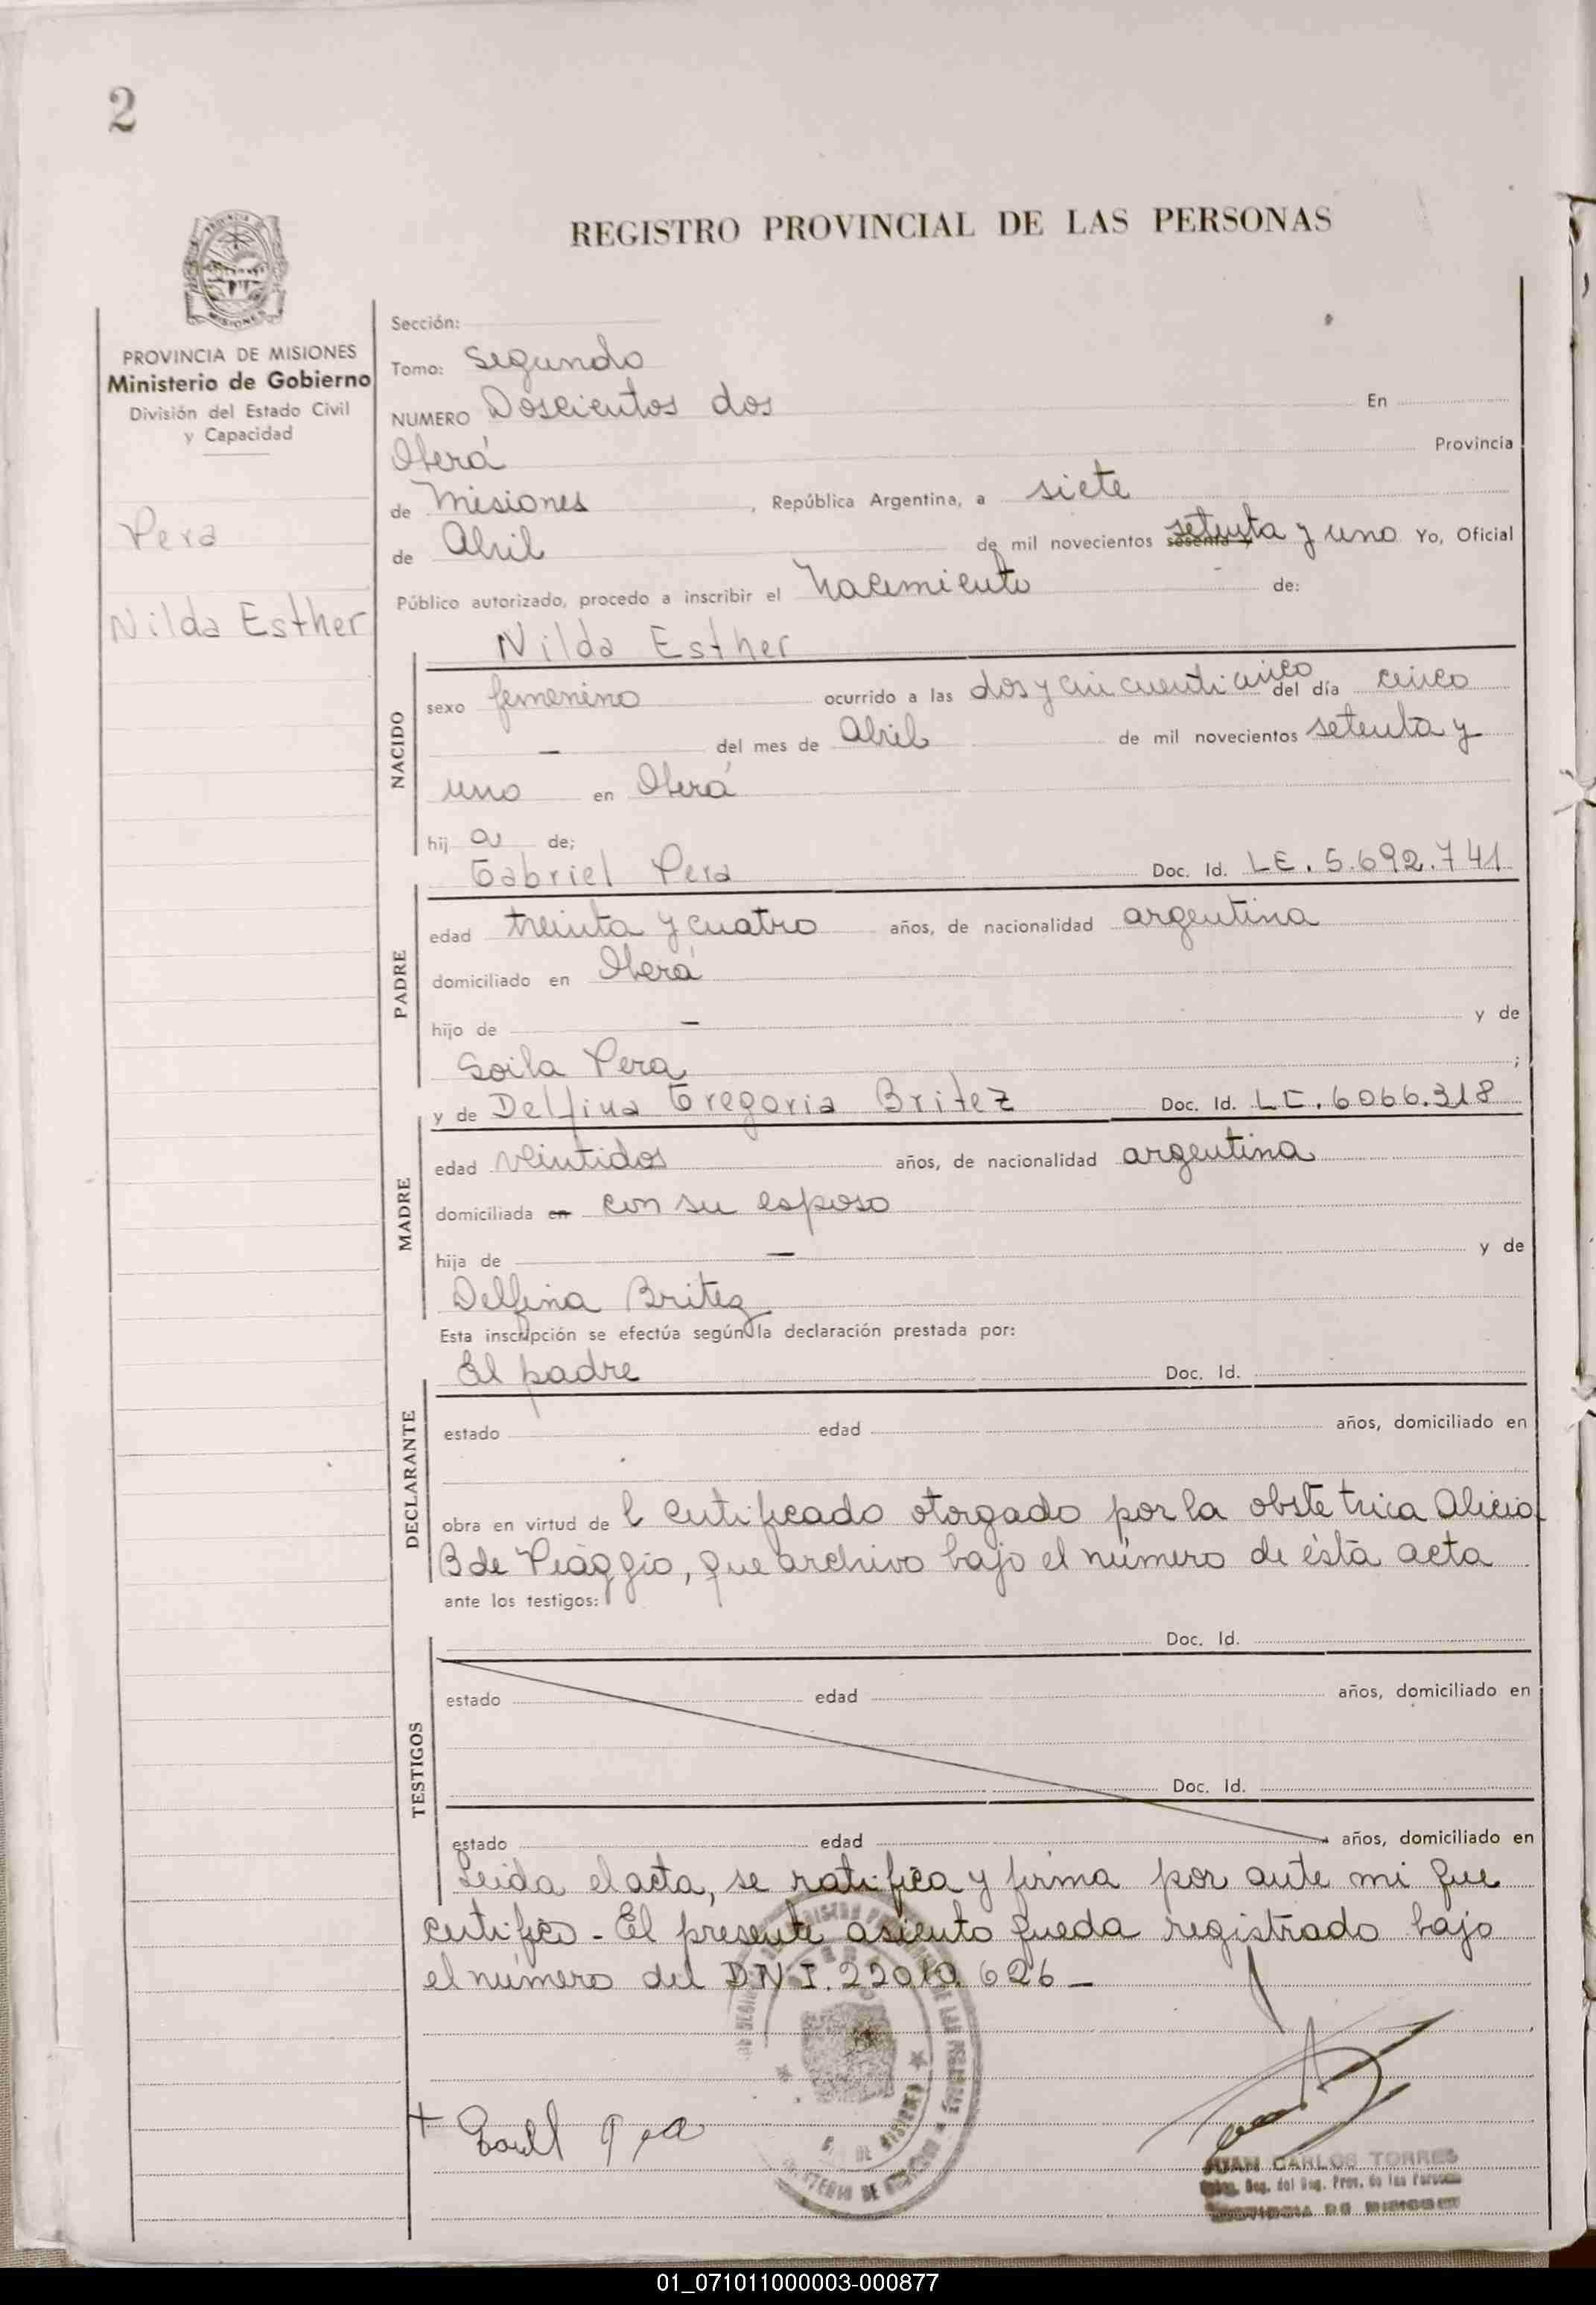 2
REGISTRO PROVINCIAL DE LAS PERSONAS
PROVINCIA DE MISIONES
Ministerio de Gobierno
División del Estado Civil
y Capacidad
Pera
Nilda Esther
Sección:
Tomo: Segundo
NUMERO Doscientos dos En
Oberá Provincia
de Misiones, República Argentina, a siete
de Abril de mil novecientos setenta y uno Yo, Oficial
Público autorizado, procedo a inscribir el Nacimiento de:
NACIDO
Nilda Esther
sexo femenino ocurrido a las dos y cincuenticinco del día cinco
— del mes de Abril de mil novecientos setenta y
uno en Oberá
hij a de;
PADRE
Gabriel Pera Doc. Id. LE. 5.692.741
edad treinta y cuatro años, de nacionalidad argentina
domiciliado en Oberá
hijo de — y de
Soila Pera ;
MADRE
y de Delfina Gregoria Britez Doc. Id. LC. 6.066.318
edad veintidos años, de nacionalidad argentina
domiciliada en con su esposo
hija de — y de
Delfina Britez
Esta inscripción se efectúa según la declaración prestada por:
DECLARANTE
El padre Doc. Id.
estado edad años, domiciliado en
obra en virtud de l certificado otorgado por la obstetrica Alicia
B de Piaggio, que archivo bajo el número de ésta acta
ante los testigos:
TESTIGOS
Doc. Id.
estado edad años, domiciliado en
Doc. Id.
estado edad años, domiciliado en
Leida el acta, se ratifica y firma por ante mi que
certifico - El presente asiento queda registrado bajo
el número del D.N.I. 22010.626 —
JUAN CARLOS TORRES
Deg. del Reg. Prov. de las Personas
PROVINCIA DE MISIONES
01_071011000003-000877